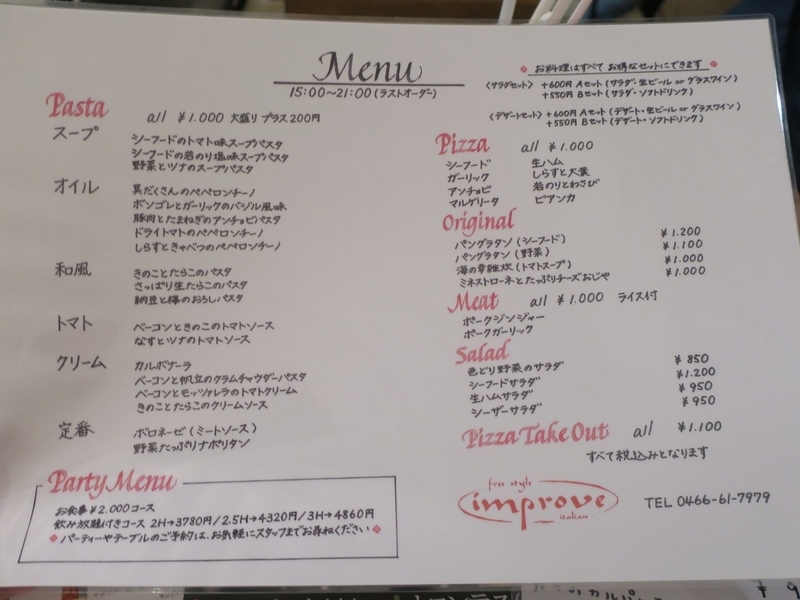 Menu
15:00~21:00(ラストオーダー)
◆ お料理はすべて お得なセットにできます ◆
〈サラダセット〉 +600円 Aセット(サラダ・生ビール or グラスワイン)
+550円 Bセット(サラダ・ソフトドリンク)
〈デザートセット〉 +600円 Aセット(デザート・生ビール or グラスワイン)
+550円 Bセット(デザート・ソフトドリンク)
Pasta all ¥1.000 大盛り プラス200円
スープ
シーフードのトマト味スープパスタ
シーフードの岩のり塩味スープパスタ
野菜とツナのスープパスタ
オイル
具だくさんのペペロンチーノ
ボンゴレとガーリックのバジル風味
豚肉とたまねぎのアンチョビパスタ
ドライトマトのペペロンチーノ
しらすときゃべつのペペロンチーノ
和風
きのことたらこのパスタ
さっぱり生たらこのパスタ
納豆と梅のおろしパスタ
トマト
ベーコンときのこのトマトソース
なすとツナのトマトソース
クリーム
カルボナーラ
ベーコンと帆立のクラムチャウダーパスタ
ベーコンとモッツァレラのトマトクリーム
きのことたらこのクリームソース
定番
ボロネーゼ(ミートソース)
野菜たっぷりナポリタン
Party Menu
お食事¥2.000コース
飲み放題付きコース 2H→3780円/2.5H→4320円/3H→4860円
◆ パーティーやテーブルのご予約は、お気軽にスタッフまでお尋ねください ◆
Pizza all ¥1.000
シーフード 生ハム
ガーリック しらすと大葉
アンチョビ 岩のりとわさび
マルゲリータ ビアンカ
Original
パングラタン(シーフード) ¥1.200
パングラタン(野菜) ¥1.100
海の幸雑炊(トマトスープ) ¥1.000
ミネストローネとたっぷりチーズおじや ¥1.000
Meat all ¥1.000 ライス付
ポークジンジャー
ポークガーリック
Salad
色どり野菜のサラダ ¥850
シーフードサラダ ¥1.200
生ハムサラダ ¥950
シーザーサラダ ¥950
Pizza Take Out all ¥1.100
すべて税込みとなります
free style
improve
italian
TEL 0466-61-7979